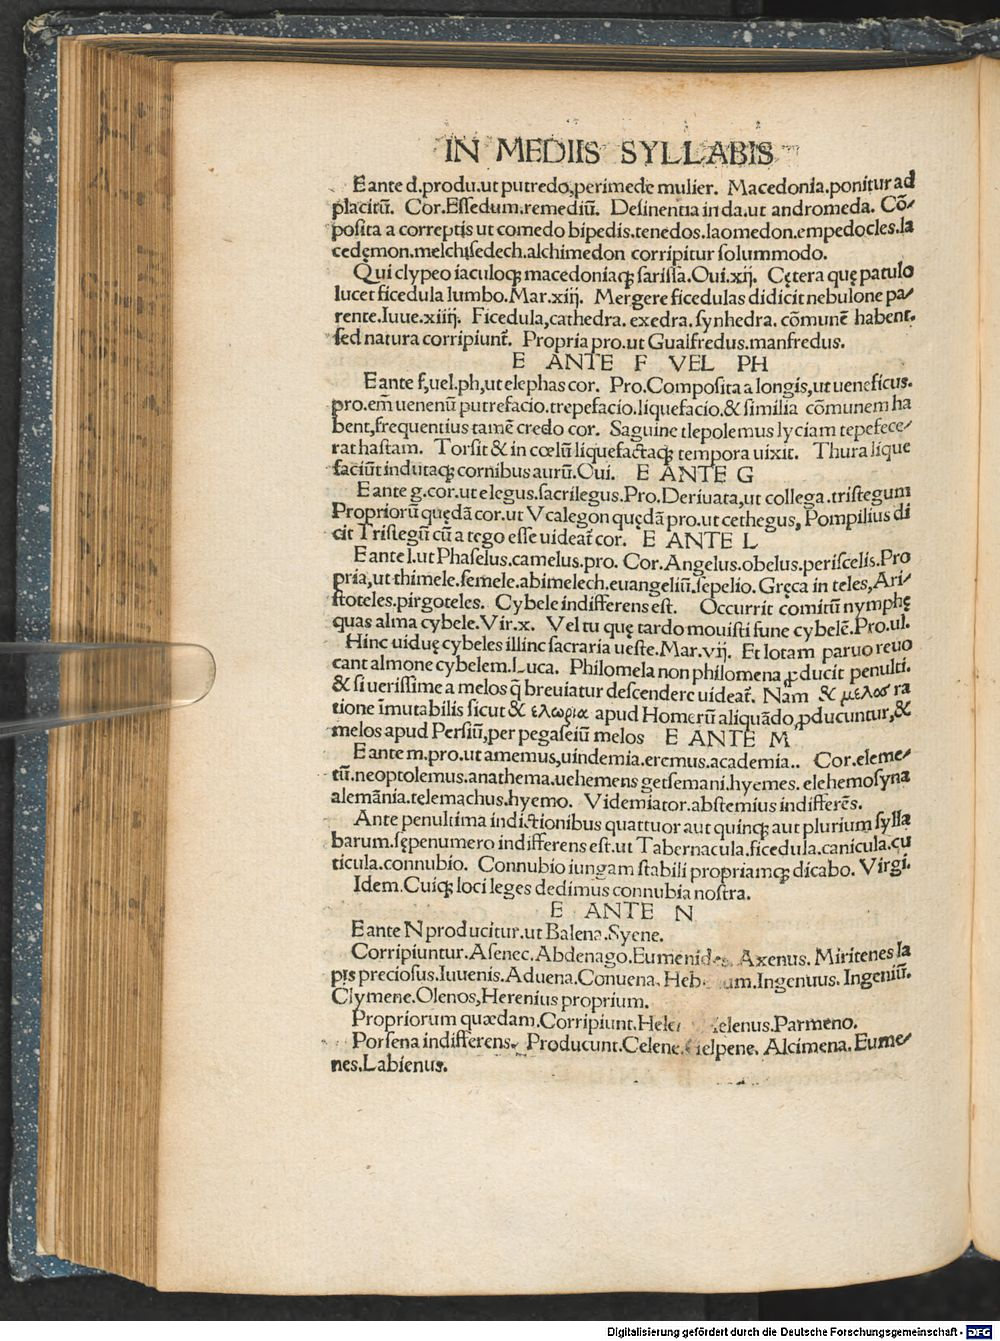 IN MEDIIS SYLLABIS
E ante d.produ.ut putredo,perimede mulier. Macedonia.ponitur ad
placitū. Cor.Essedum.remediū. Desinentia in da.ut andromeda. Cō/
posita a correptis ut comedo bipedis.tenedos.laomedon.empedocles.la
cedęmon.melchisedech.alchimedon corripitur solummodo.
Qui clypeo iaculoqꝫ macedoniaqꝫ sarissa.Oui.xij. Cętera quę patulo
lucet ficedula lumbo.Mar.xiij. Mergere ficedulas didicit nebulone pa/
rente.Iuue.xiiij. Ficedula,cathedra. exedra. synhedra. cōmunē habent.
sed natura corripiunt̄. Propria pro.ut Gualfredus.manfredus.
E ANTE F VEL PH
E ante f,uel.ph,ut elephas cor. Pro.Composita a longis,ut ueneficus.
pro.em̄ uenenū putrefacio.trepefacio.liquefacio.& similia cōmunem ha
bent,frequentius tamē credo cor. Saguine tlepolemus lyciam tepefece/
rat hastam. Torsit & in cœlū liquefactaqꝫ tempora uixit. Thura lique
faciūt indutaqꝫ cornibus aurū.Oui. E ANTE G
E ante g.cor.ut elegus.sacrilegus.Pro.Deriuata,ut collega.tristegum
Propriorū quędā cor.ut Vcalegon quędā pro.ut cethegus, Pompilius di
cit Tristegū cū a tego esse uideat̄ cor. E ANTE L
E ante l.ut Phaselus.camelus.pro. Cor.Angelus.obelus.periscelis.Pro
pria,ut thimele.semele.abimelech.euangeliū.sepelio.Gręca in teles,Ari/
stoteles.pirgoteles. Cybele indifferens est. Occurrit comitū nymphę
quas alma cybele.Vir.x. Vel tu quę tardo mouisti fune cybelē.Pro.ul.
Hinc uiduę cybeles illinc sacraria ueste.Mar.vij. Et lotam paruo reuo
cant almone cybelem.Luca. Philomela non philomena ꝓducit penulti.
& si uerissime a melos q̄ breuiatur descendere uideat̄. Nam & μελος ra
tione īmutabilis sicut & ελωρια apud Homerū aliquādo,ꝓducuntur,&
melos apud Persiū,per pegaseiū melos E ANTE M
E ante m.pro.ut amemus,uindemia.eremus.academia.. Cor.eleme/
tū.neoptolemus.anathema.uehemens getsemani.hyemes. elehemosyna
alemānia.telemachus.hyemo. Videmiator.abstemius indifferēs.
Ante penultima indictionibus quattuor aut quinqꝫ aut plurium sylla
barum.sępenumero indifferens est.ut Tabernacula.ficedula.canicula.cu
ticula.connubio. Connubio iungam stabili propriamqꝫ dicabo. Virgi.
Idem.Cuiqꝫ loci leges dedimus connubia nostra.
E ANTE N
E ante N producitur.ut Balena.Syene.
Corripiuntur.Asenec.Abdenago.Eumenides. Axenus. Miritenes la
pis preciosus.Iuuenis.Aduena.Conuena. Ingenuus. Ingeniū.
Clymene.Olenos,Herenius proprium.
Propriorum quædam.Corripiunt. Parmeno.
Porsena indifferens. Producunt.Celene. Alcimena. Eume/
nes.Labienus.
Digitalisierung gefördert durch die Deutsche Forschungsgemeinschaft - DFG